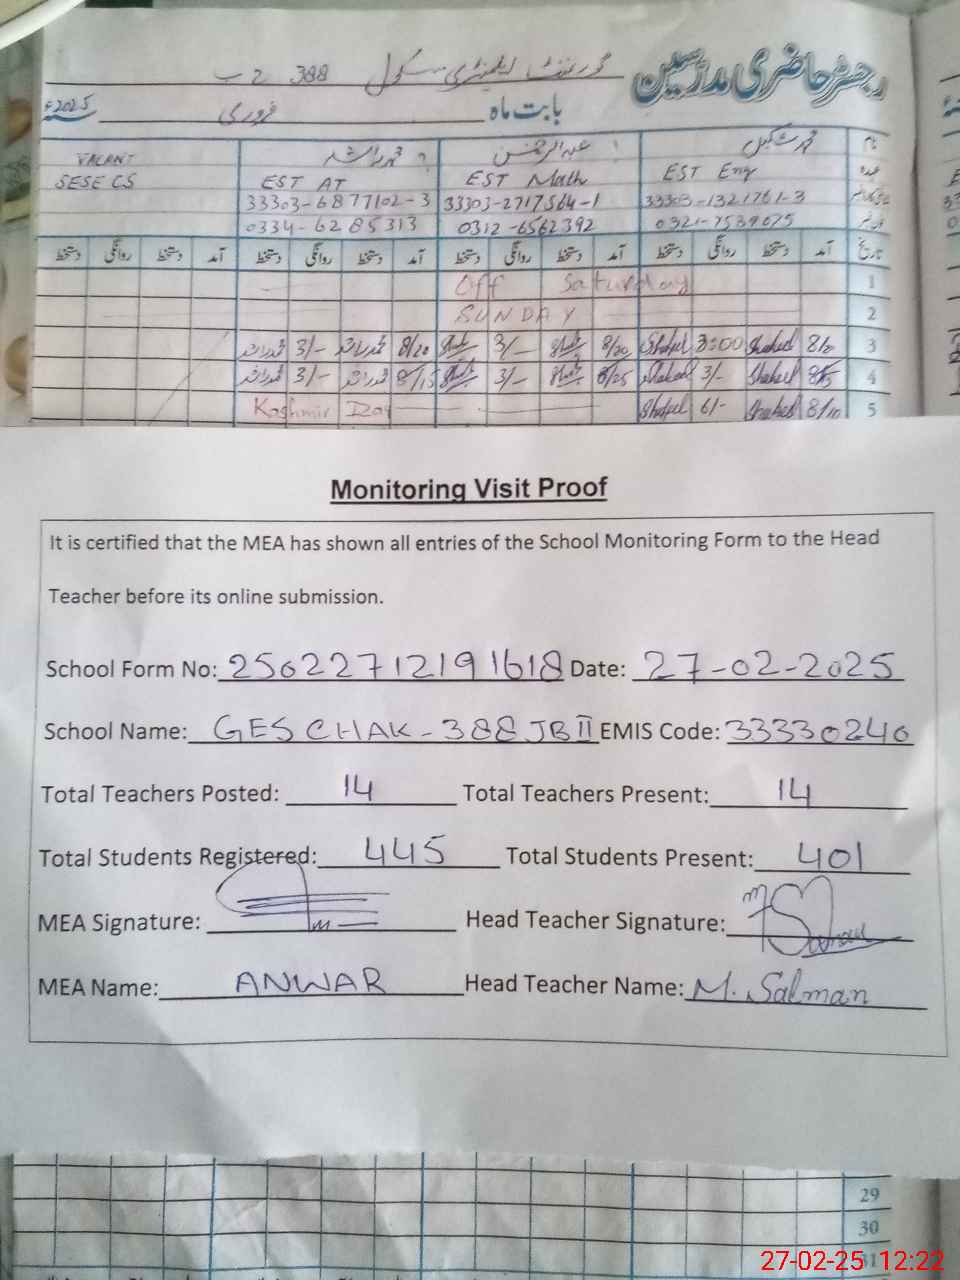 رجسٹر حاضری مدرسین گورنمنٹ ایلیمنٹری سکول 388 ج ب
بابت ماہ فروری 2025ء
نام محمد شکیل عبدالرحمٰن محمد راشد VACANT
عہدہ EST Eng EST Math EST AT SESE CS
33303-1321761-3 33303-2717564-1 33303-6877102-3
0321-7539675 0312-6562392 0334-6285313
تاریخ آمد دستخط روانگی دستخط آمد دستخط روانگی دستخط آمد دستخط روانگی دستخط آمد دستخط روانگی دستخط
1 Off Saturday
2 SUNDAY
3 Shakeel 3/- 8/20 3/- 8/20
4 Shakeel 3/- 8/25 3/- 8/15 3/-
5 8/10 Shakeel 6/- Shakeel Kashmir Day
Monitoring Visit Proof
It is certified that the MEA has shown all entries of the School Monitoring Form to the Head
Teacher before its online submission.
School Form No: 25022712191618 Date: 27-02-2025
School Name: GES CHAK-388 JB II EMIS Code: 33330240
Total Teachers Posted: 14 Total Teachers Present: 14
Total Students Registered: 445 Total Students Present: 401
MEA Signature: Head Teacher Signature:
MEA Name: ANWAR Head Teacher Name: M. Salman
29
30
31
27-02-25 12:22